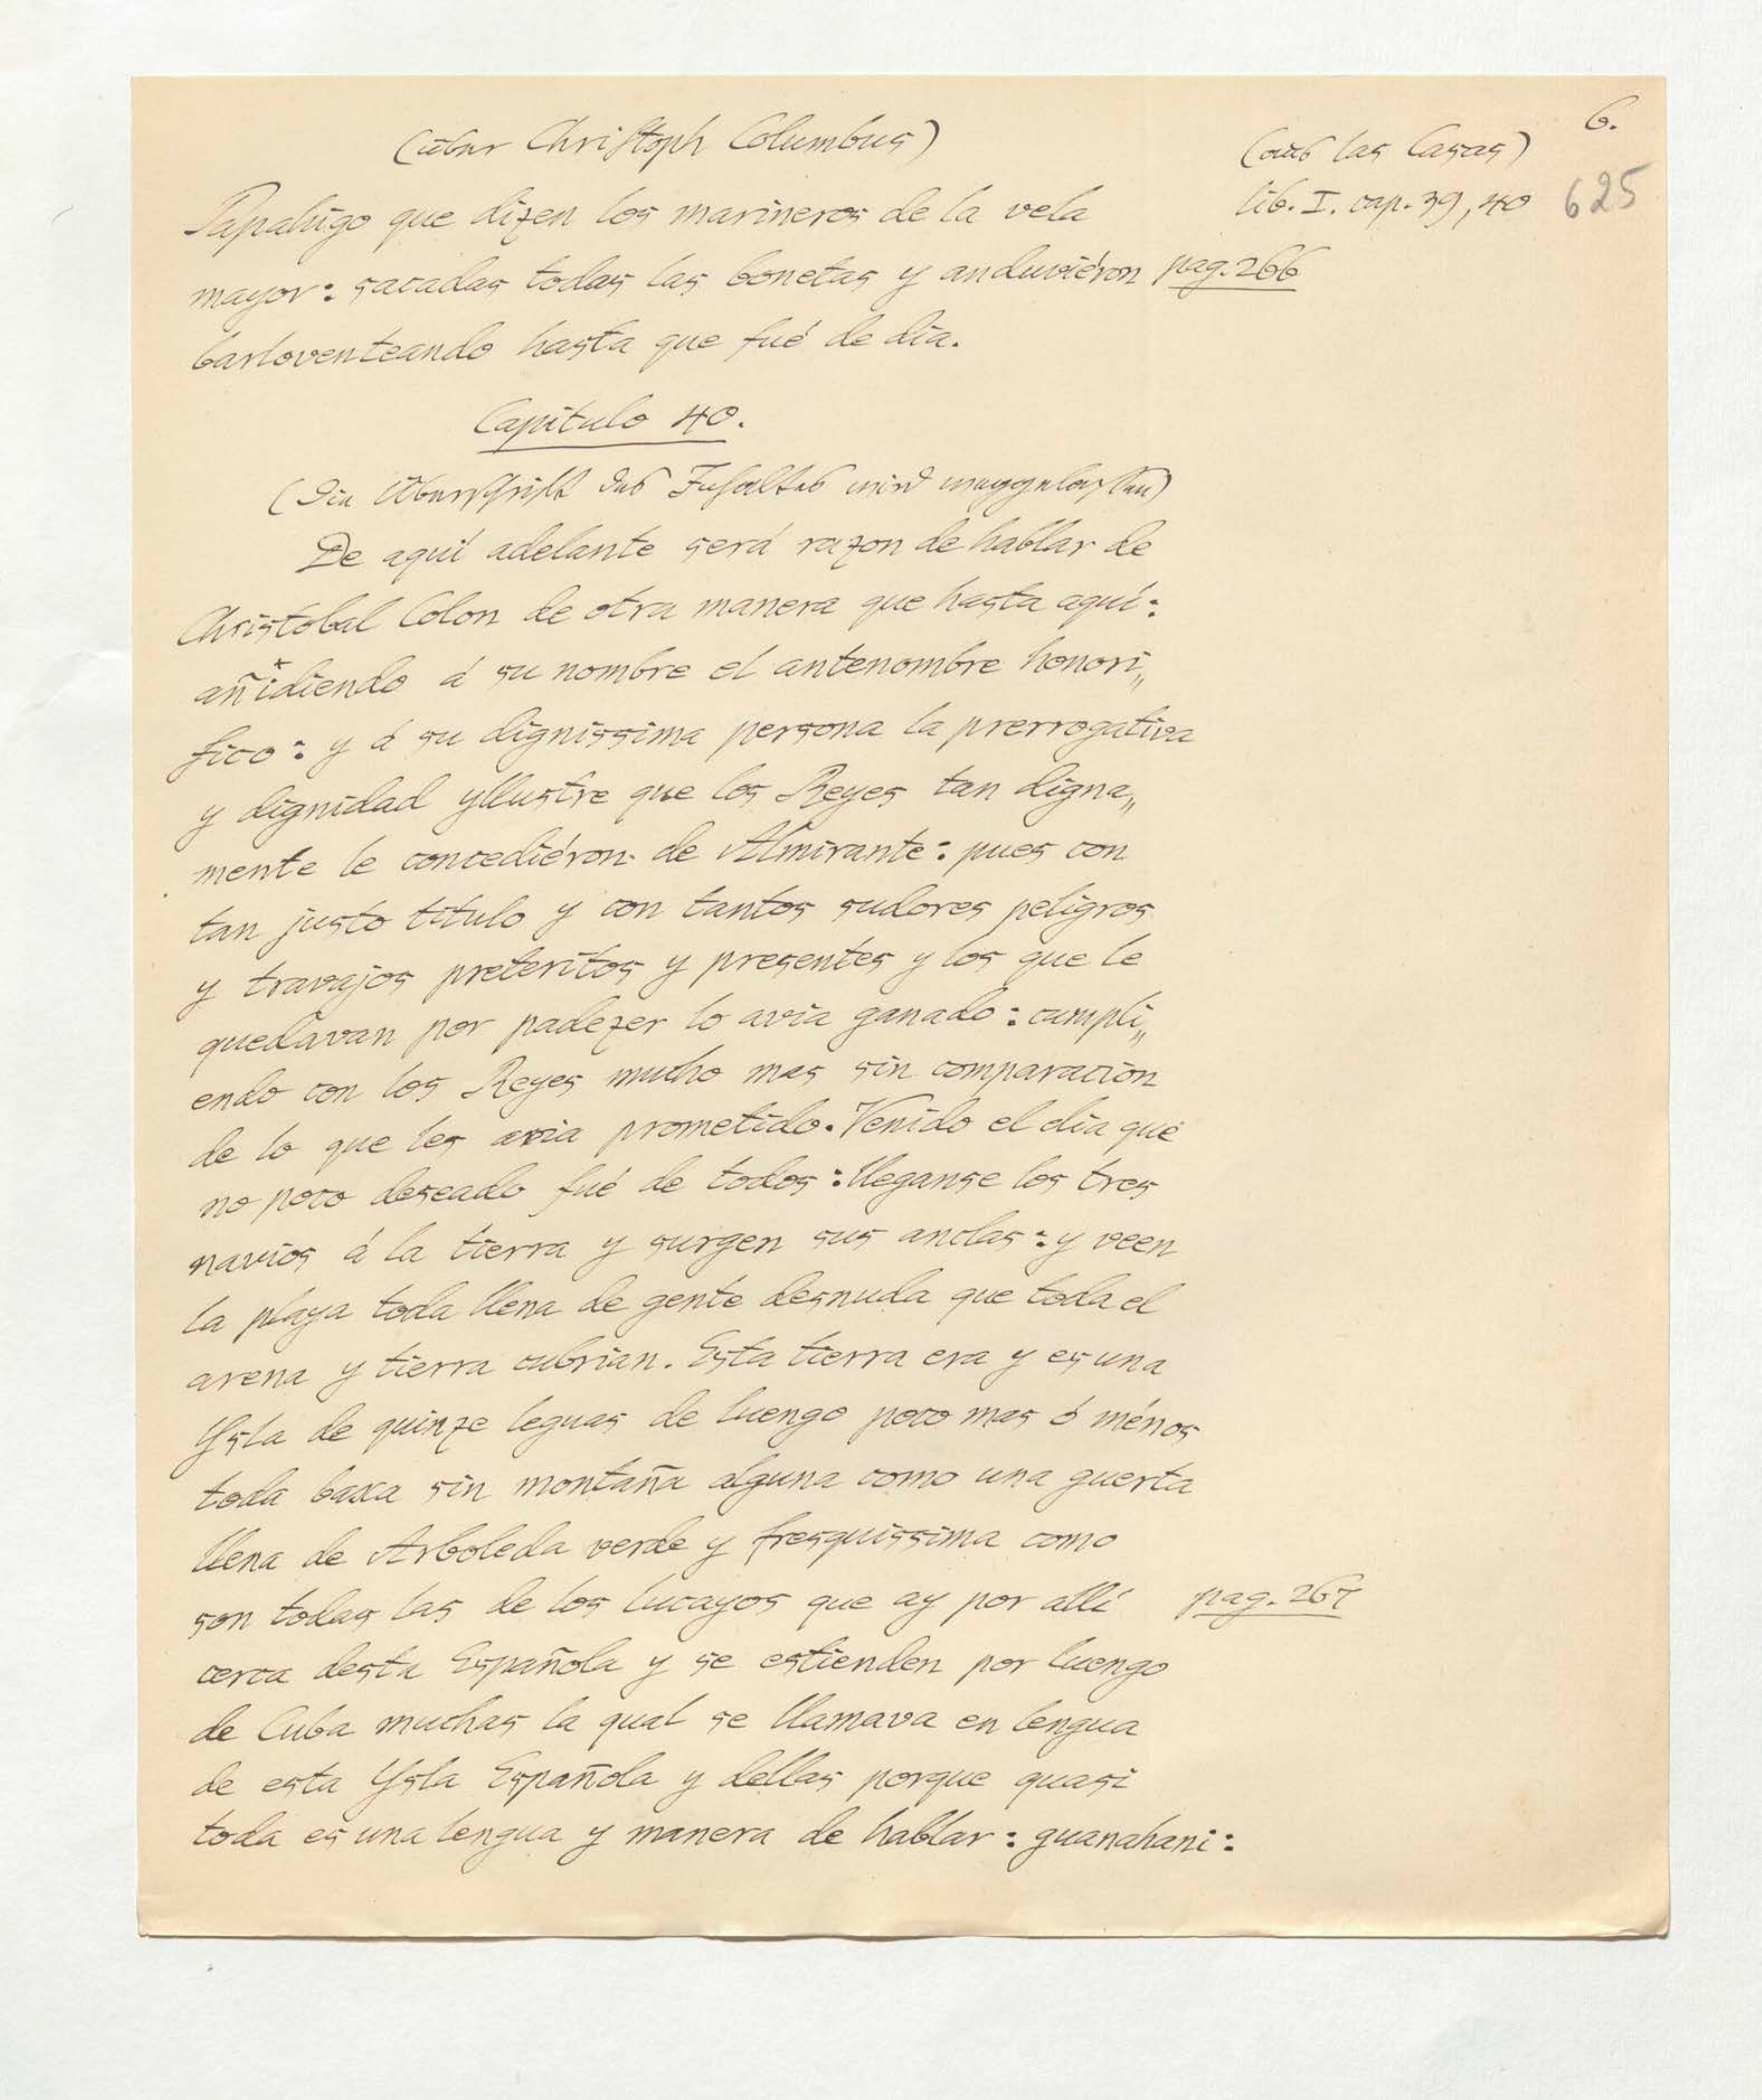 (über Christoph Columbus)
(aus las Casas)
6.
lib. I. cap. 39, 40
625
Papahigo que dizen los marineros de la vela
mayor: sacadas todas las bonetas y anduviéron
pag. 266
barloventeando hasta que fué de dia.
Capitulo 40.
(Die Überschrift des Inhaltes wird weggelassen)
De aquí adelante será razon de hablar de
Christobal Colon de otra manera que hasta aquí:
añidiendo á su nombre el antenombre honori„
fico: y á su dignissima persona la prerrogativa
y dignidad yllustre que los Reyes tan digna„
mente le concediéron de Almirante: pues con
tan justo titulo y con tantos sudores peligros
y travajos preteritos y presentes y los que le
quedavan por padezer lo avia ganado: cumpli„
endo con los Reyes mucho mas sin comparacion
de lo que les avia prometido. Venido el dia que
no poco deseado fué de todos: lleganse los tres
navios á la tierra y surgen sus anclas: y veen
la playa toda llena de gente desnuda que toda el
arena y tierra cubrian. Esta tierra era y es una
Ysla de quinze leguas de luengo poco mas ó ménos
toda baxa sin montaña alguna como una guerta
llena de Arboleda verde y fresquissima como
son todas las de los lucayos que ay por allí
pag. 267
cerca desta Española y se estienden por luengo
de Cuba muchas la qual se llamava en lengua
de esta Ysla Española y dellas porque quasi
toda es una lengua y manera de hablar: guanahani: